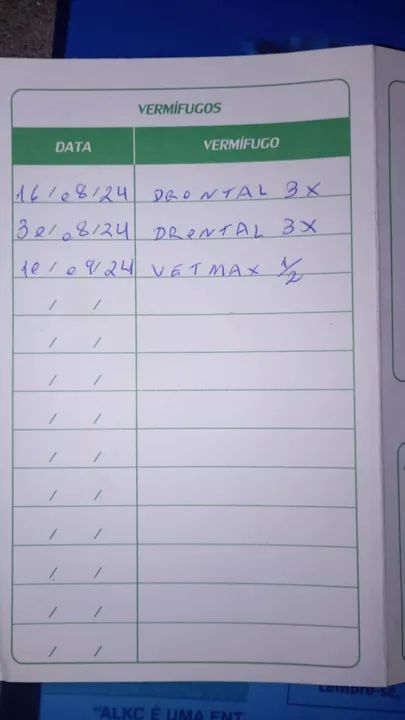 VERMÍFUGOS
DATA VERMÍFUGO
16/08/24 DRONTAL 3X
30/08/24 DRONTAL 3X
10/09/24 VETMAX 1/2
/ /
/ /
/ /
/ /
/ /
/ /
/ /
/ /
/ /
/ /
Lembre-se
"ALKC É UMA ENT